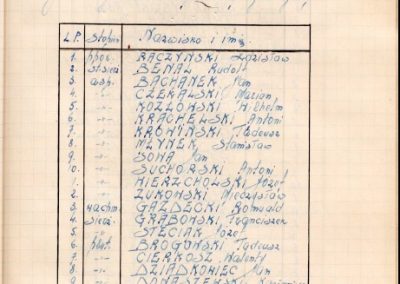 L.P. Stopień Nazwisko i imię
1. ppor. RACZYŃSKI Zdzisław
2. st.sierż BENAL Rudolf
3. wąp. BACHANEK Jan
4. -"- CZEKALSKI Marian
5. -"- KOZŁOWSKI Wilhelm
6. -"- KRACHEL Antoni
7. -"- KROWIŃSKI Tadeusz
8. -"- MŁYNEK Stanisław
9. -"- SOWA Jan
10. -"- SUCHORSKI Antoni
1. -"- WIERZCHOLSKI Józef
2. -"- ŻUKOWSKI Mieczysław
3. wachm. GAŹDZECKI Romuald
4. sierż. GRABOWSKI Franciszek
5. -"- STECIAK Józef
6. plut. BROGOWSKI Tadeusz
7. -"- CIERKOSZ Walenty
8. -"- DZIADKOWIEC Jan
9. -"- DONASZEWSKI Kazimierz